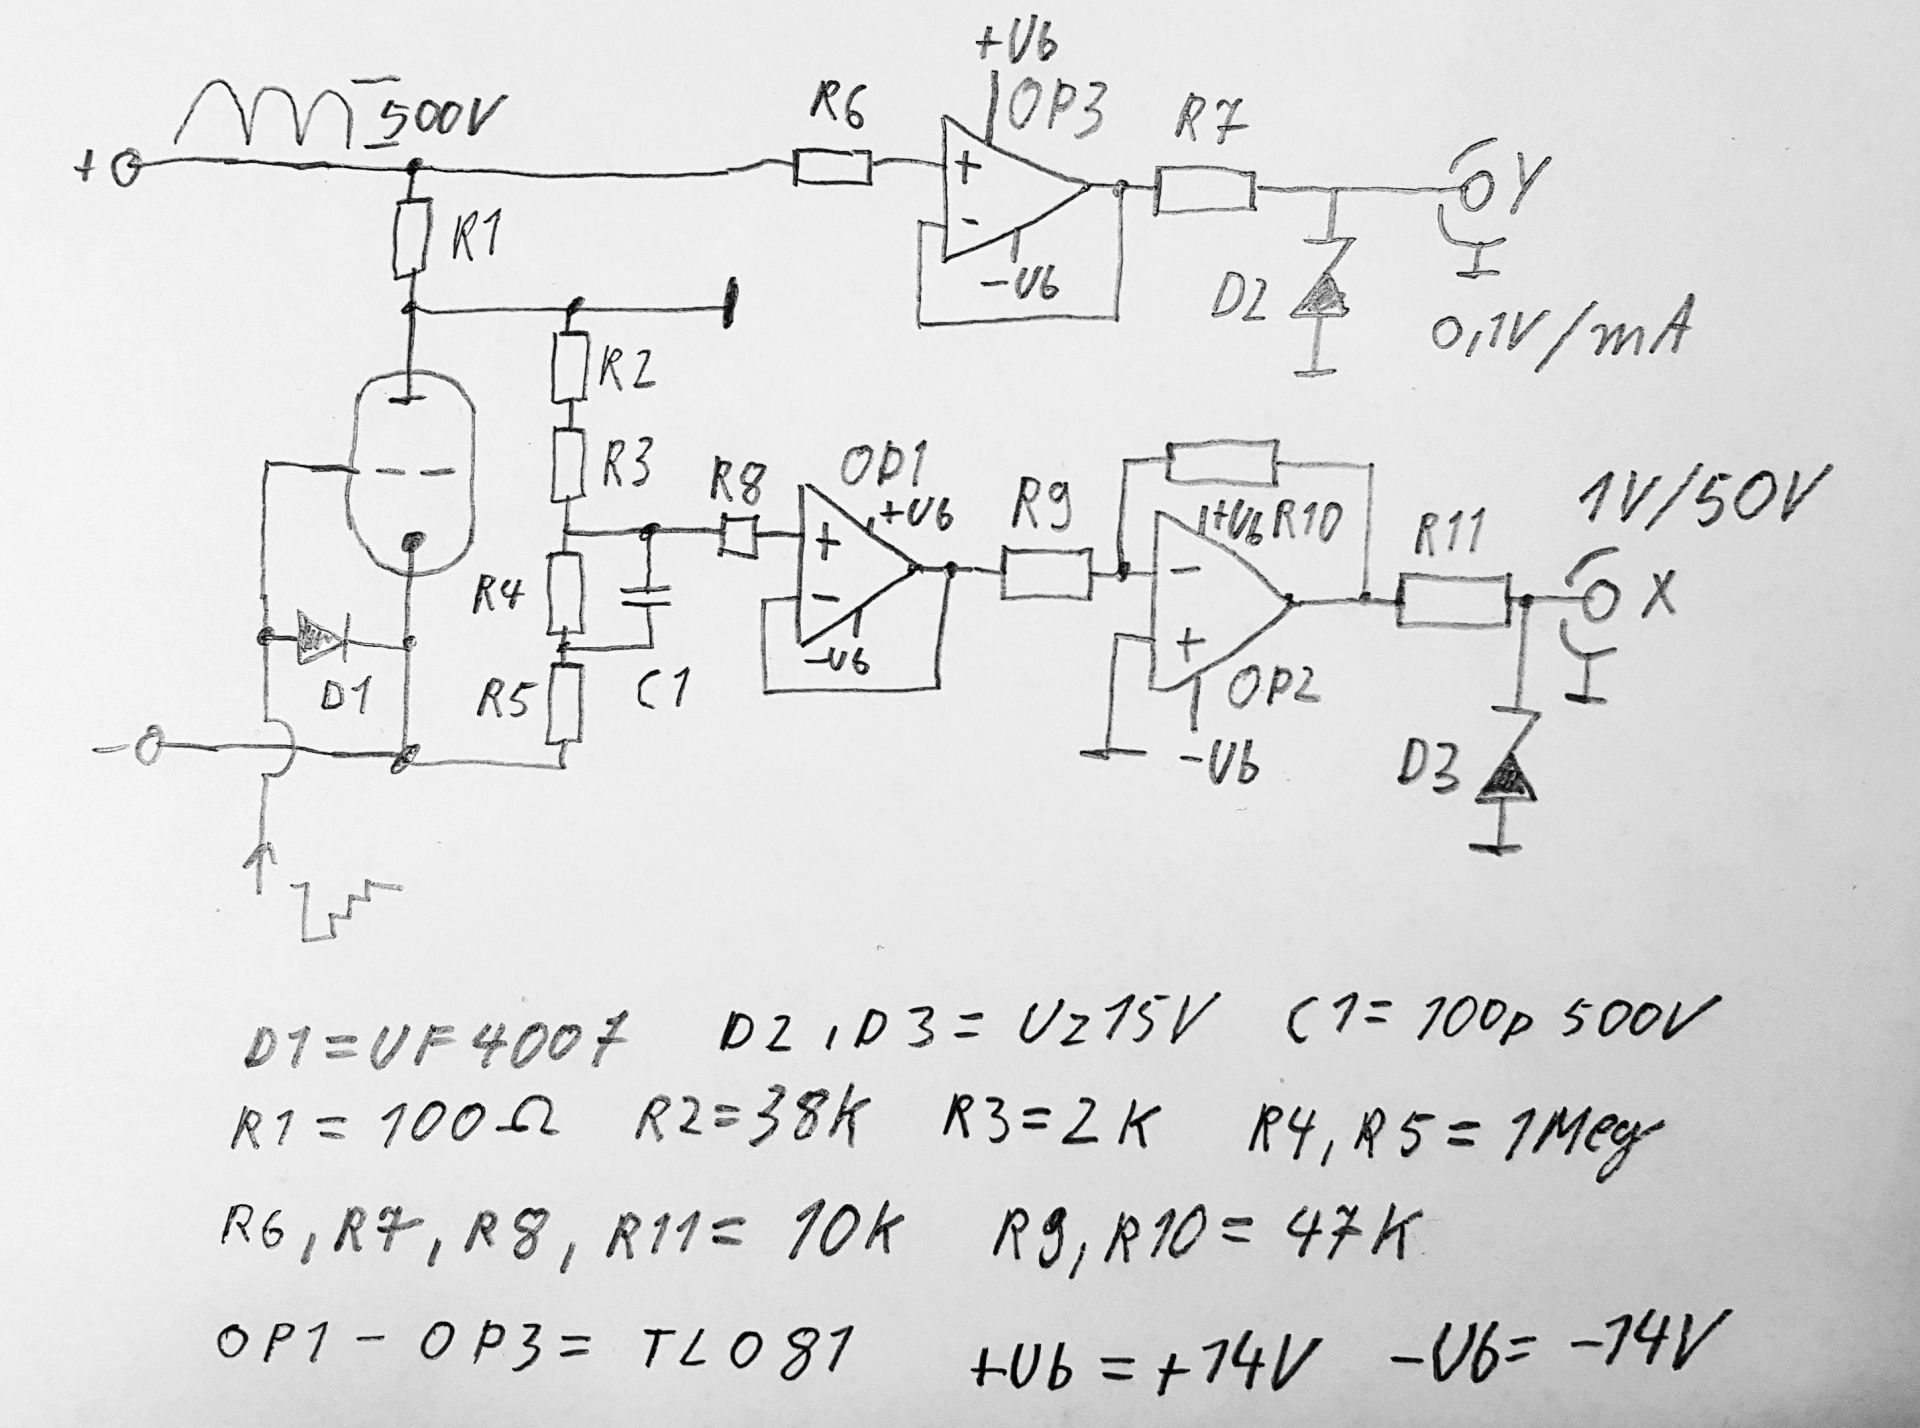 +Ub
500V
R6
OP3
R7
+
+
Y
-
R1
-Ub
D2
0,1V/mA
R2
R3
R8
OP1
+Ub
R9
+Ub
R10
R11
1V/50V
+
-
X
R4
-
-Ub
+
D1
R5
C1
OP2
-
-Ub
D3
D1=UF4007 D2, D3= Uz15V C1= 100p 500V
R1= 100Ω R2=38k R3=2K R4, R5= 1Meg
R6, R7, R8, R11= 10k R9, R10= 47K
OP1 - OP3= TL081 +Ub = +14V -Ub= -14V